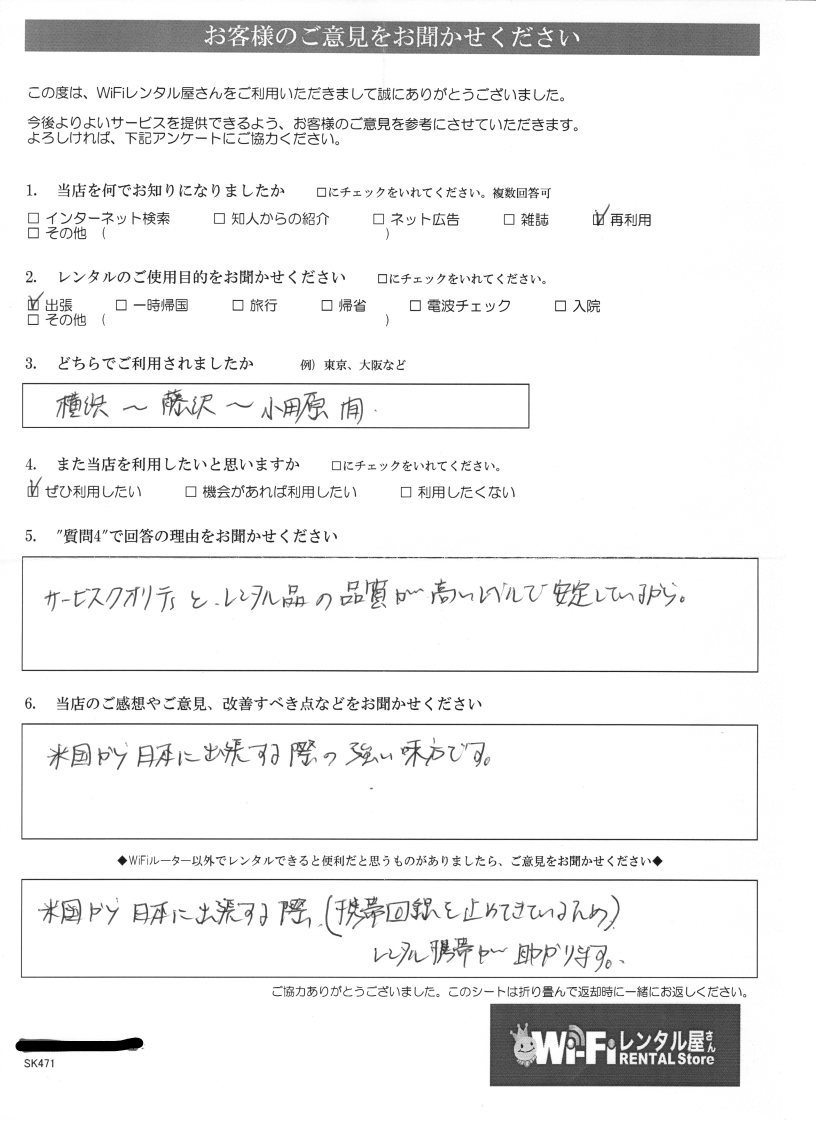 お客様のご意見をお聞かせください
この度は、WiFiレンタル屋さんをご利用いただきまして誠にありがとうございました。
今後よりよいサービスを提供できるよう、お客様のご意見を参考にさせていただきます。
よろしければ、下記アンケートにご協力ください。
1. 当店を何でお知りになりましたか □にチェックをいれてください。複数回答可
□ インターネット検索 □ 知人からの紹介 □ ネット広告 □ 雑誌 ☑ 再利用
□ その他 ( )
2. レンタルのご使用目的をお聞かせください □にチェックをいれてください。
☑ 出張 □ 一時帰国 □ 旅行 □ 帰省 □ 電波チェック □ 入院
□ その他 ( )
3. どちらでご利用されましたか 例）東京、大阪など
横浜 〜 藤沢 〜 小田原 間.
4. また当店を利用したいと思いますか □にチェックをいれてください。
☑ ぜひ利用したい □ 機会があれば利用したい □ 利用したくない
5. "質問4"で回答の理由をお聞かせください
サービスクオリティと、レンタル品の品質が高いレベルで安定しているから。
6. 当店のご感想やご意見、改善すべき点などをお聞かせください
米国から日本に出張する際の強い味方です。
◆WiFiルーター以外でレンタルできると便利だと思うものがありましたら、ご意見をお聞かせください◆
米国から日本に出張する際、(携帯回線を止めてきているため)
レンタル携帯が助かります。
ご協力ありがとうございました。このシートは折り畳んで返却時に一緒にお返しください。
Wi-Fiレンタル屋さん
RENTAL Store
SK471